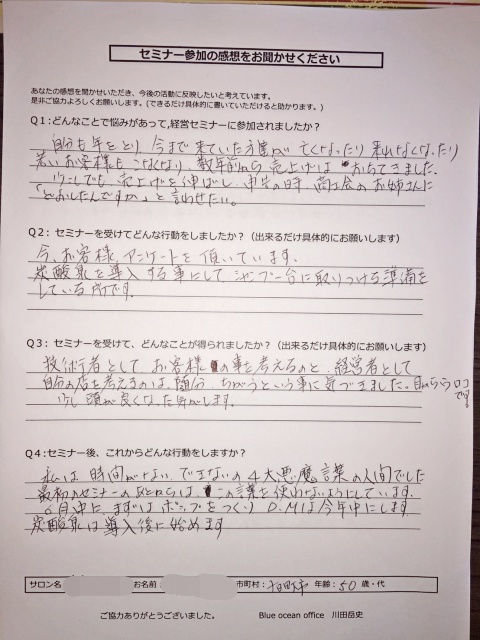 セミナー参加の感想をお聞かせください
あなたの感想を聞かせいただき、今後の活動に反映したいと考えています。
是非ご協力よろしくお願いします。(できるだけ具体的に書いていただけると助かります。)
Q1:どんなことで悩みがあって,経営セミナーに参加されましたか?
自分も年をとり、今まで来ていた方達が亡くなったり来れなくなったり
若いお客様もこなくなり、数年前から売上げはおちてきました。
少しでも売上げを伸ばし、申告の時、商工会のお姉さんに
「どおしたんですか」と言わせたい。
Q2: セミナーを受けてどんな行動をしましたか?(出来るだけ具体的にお願いします)
今、お客様アンケートを頂いています。
炭酸泉を導入する事にしてシャンプー台に取りつける準備を
している所です。
Q3: セミナーを受けて、どんなことが得られましたか?(出来るだけ具体的にお願いします)
技術者としてお客様の事を考えるのと、経営者として
自分の店を考えるのは、随分ちがうという事に気づきました。目からウロコ
です!
少し頭が良くなった気がします。
Q4:セミナー後、これからどんな行動をしますか?
私は時間がない、できないの4大悪魔言葉の人間でした
最初のセミナーのあとからは、この言葉を使わないようにしています。
6月中に、まずはポップをつくり D.Mは今年中にします
炭酸泉は導入後に始めます
サロン名 お名前 市町村: 十日町市 年齢:50歳・代
ご協力ありがとうございました。 Blue ocean office 川田岳史